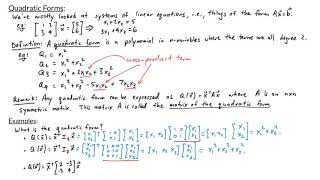 Quadratic Forms:
We've mostly looked at systems of linear equations, i.e., things of the form Ax⃗=b⃗.
eg [1 2; 3 4] [x₁; x₂] = [5; 6] x₁+2x₂=5
3x₁+4x₂=6
Definition: A quadratic form is a polynomial in n-variables where the terms are all degree 2.
eg Q₁ = x₁²
Q₂ = x₁²+x₂²
cross-product term
Q₃ = x₁²+2x₁x₂+3x₂²
Q₄ = x₁²-5x₁x₂+7x₂x₃
Remark: Any quadratic form can be expressed as Q(x⃗)=x⃗ᵀAx⃗ where A is an n×n
symmetric matrix. This matrix A is called the matrix of the quadratic form.
Examples:
What is the quadratic form?
• Q(x⃗)=x⃗ᵀI₂x⃗ = [x₁ x₂][1 0; 0 1][x₁; x₂] = [x₁ x₂][x₁; x₂] = x₁²+x₂².
• Q(x⃗)=x⃗ᵀI₃x⃗ = [x₁ x₂ x₃][1 0 0; 0 1 0; 0 0 1][x₁; x₂; x₃] = [x₁ x₂ x₃][x₁; x₂; x₃] = x₁²+x₂²+x₃².